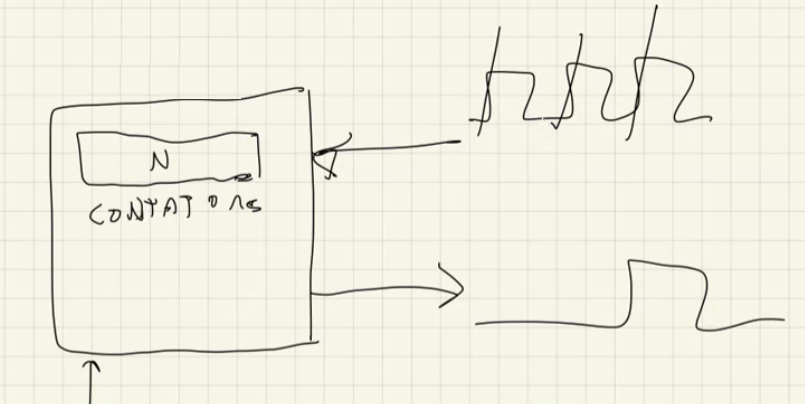 N
CONTATORE